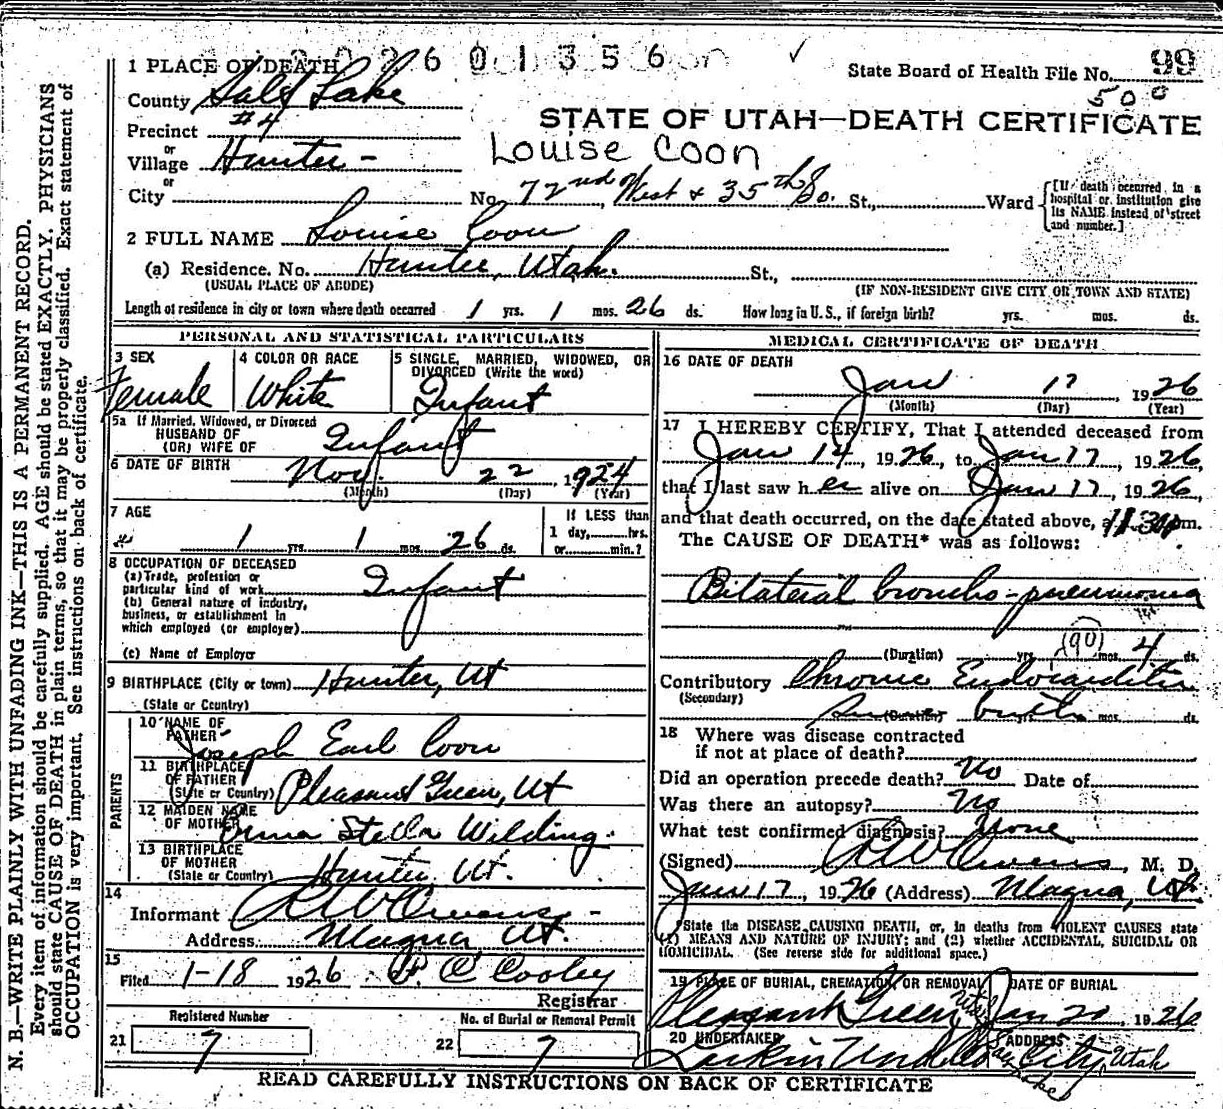 22601356
99
State Board of Health File No.
500
1 PLACE OF DEATH
County Salt Lake
STATE OF UTAH—DEATH CERTIFICATE
Precinct #4
or
Village Hunter -
Louise Coon
or
City No. 72nd West & 35th So. St., Ward [If death occurred in a hospital or institution give its NAME instead of street and number.]
2 FULL NAME Louise Coon
(a) Residence. No. Hunter, Utah. St.,
(USUAL PLACE OF ABODE) (IF NON-RESIDENT GIVE CITY OR TOWN AND STATE)
Length of residence in city or town where death occurred 1 yrs. 1 mos. 26 ds. How long in U. S., if foreign birth? yrs. mos. ds.
PERSONAL AND STATISTICAL PARTICULARS
3 SEX Female
4 COLOR OR RACE White
5 SINGLE, MARRIED, WIDOWED, OR DIVORCED (Write the word) Infant
5a If Married, Widowed, or Divorced
HUSBAND OF
(OR) WIFE OF Infant
6 DATE OF BIRTH Nov. 22, 1924
(Month) (Day) (Year)
7 AGE
1 yrs. 1 mos. 26 ds.
If LESS than
1 day, hrs.
or min.?
8 OCCUPATION OF DECEASED
(a) Trade, profession or
particular kind of work Infant
(b) General nature of industry,
business, or establishment in
which employed (or employer)
(c) Name of Employer
9 BIRTHPLACE (City or town) Hunter, Ut
(State or Country)
PARENTS
10 NAME OF
FATHER Joseph Earl Coon
11 BIRTHPLACE
OF FATHER
(State or Country) Pleasant Green, Ut
12 MAIDEN NAME
OF MOTHER Emma Stella Wilding.
13 BIRTHPLACE
OF MOTHER
(State or Country) Hunter, Ut.
14
Informant R W Owens -
Address Magna Ut.
15
Filed 1-18 1926 F. C Cooley
Registrar
Registered Number
21 7
No. of Burial or Removal Permit
22 7
MEDICAL CERTIFICATE OF DEATH
16 DATE OF DEATH
Jan 17 1926
(Month) (Day) (Year)
17 I HEREBY CERTIFY, That I attended deceased from
Jan 14, 1926, to Jan 17, 1926,
that I last saw her alive on Jan 17, 1926,
and that death occurred, on the date stated above, a 11:30 pm.
The CAUSE OF DEATH* was as follows:
Bilateral broncho-pneumonia
(90)
(Duration) yrs. mos. 4 ds.
Contributory Chronic Endocarditis
(Secondary)
since (Duration) birth yrs. mos. ds.
18 Where was disease contracted
if not at place of death?
Did an operation precede death? No Date of
Was there an autopsy? No
What test confirmed diagnosis? None
(Signed) R W Owens, M. D.
Jan 17, 1926 (Address) Magna, Ut.
*State the DISEASE CAUSING DEATH, or, in deaths from VIOLENT CAUSES state
(1) MEANS AND NATURE OF INJURY; and (2) whether ACCIDENTAL, SUICIDAL OR
HOMICIDAL. (See reverse side for additional space.)
19 PLACE OF BURIAL, CREMATION, OR REMOVAL DATE OF BURIAL
Pleasant Green Utah Jan 20, 1926
20 UNDERTAKER ADDRESS
Larkin Salt Lake City, Utah
READ CAREFULLY INSTRUCTIONS ON BACK OF CERTIFICATE
N. B.—WRITE PLAINLY WITH UNFADING INK—THIS IS A PERMANENT RECORD.
Every item of information should be carefully supplied. AGE should be stated EXACTLY. PHYSICIANS
should state CAUSE OF DEATH in plain terms, so that it may be properly classified. Exact statement of
OCCUPATION is very important. See instructions on back of certificate.